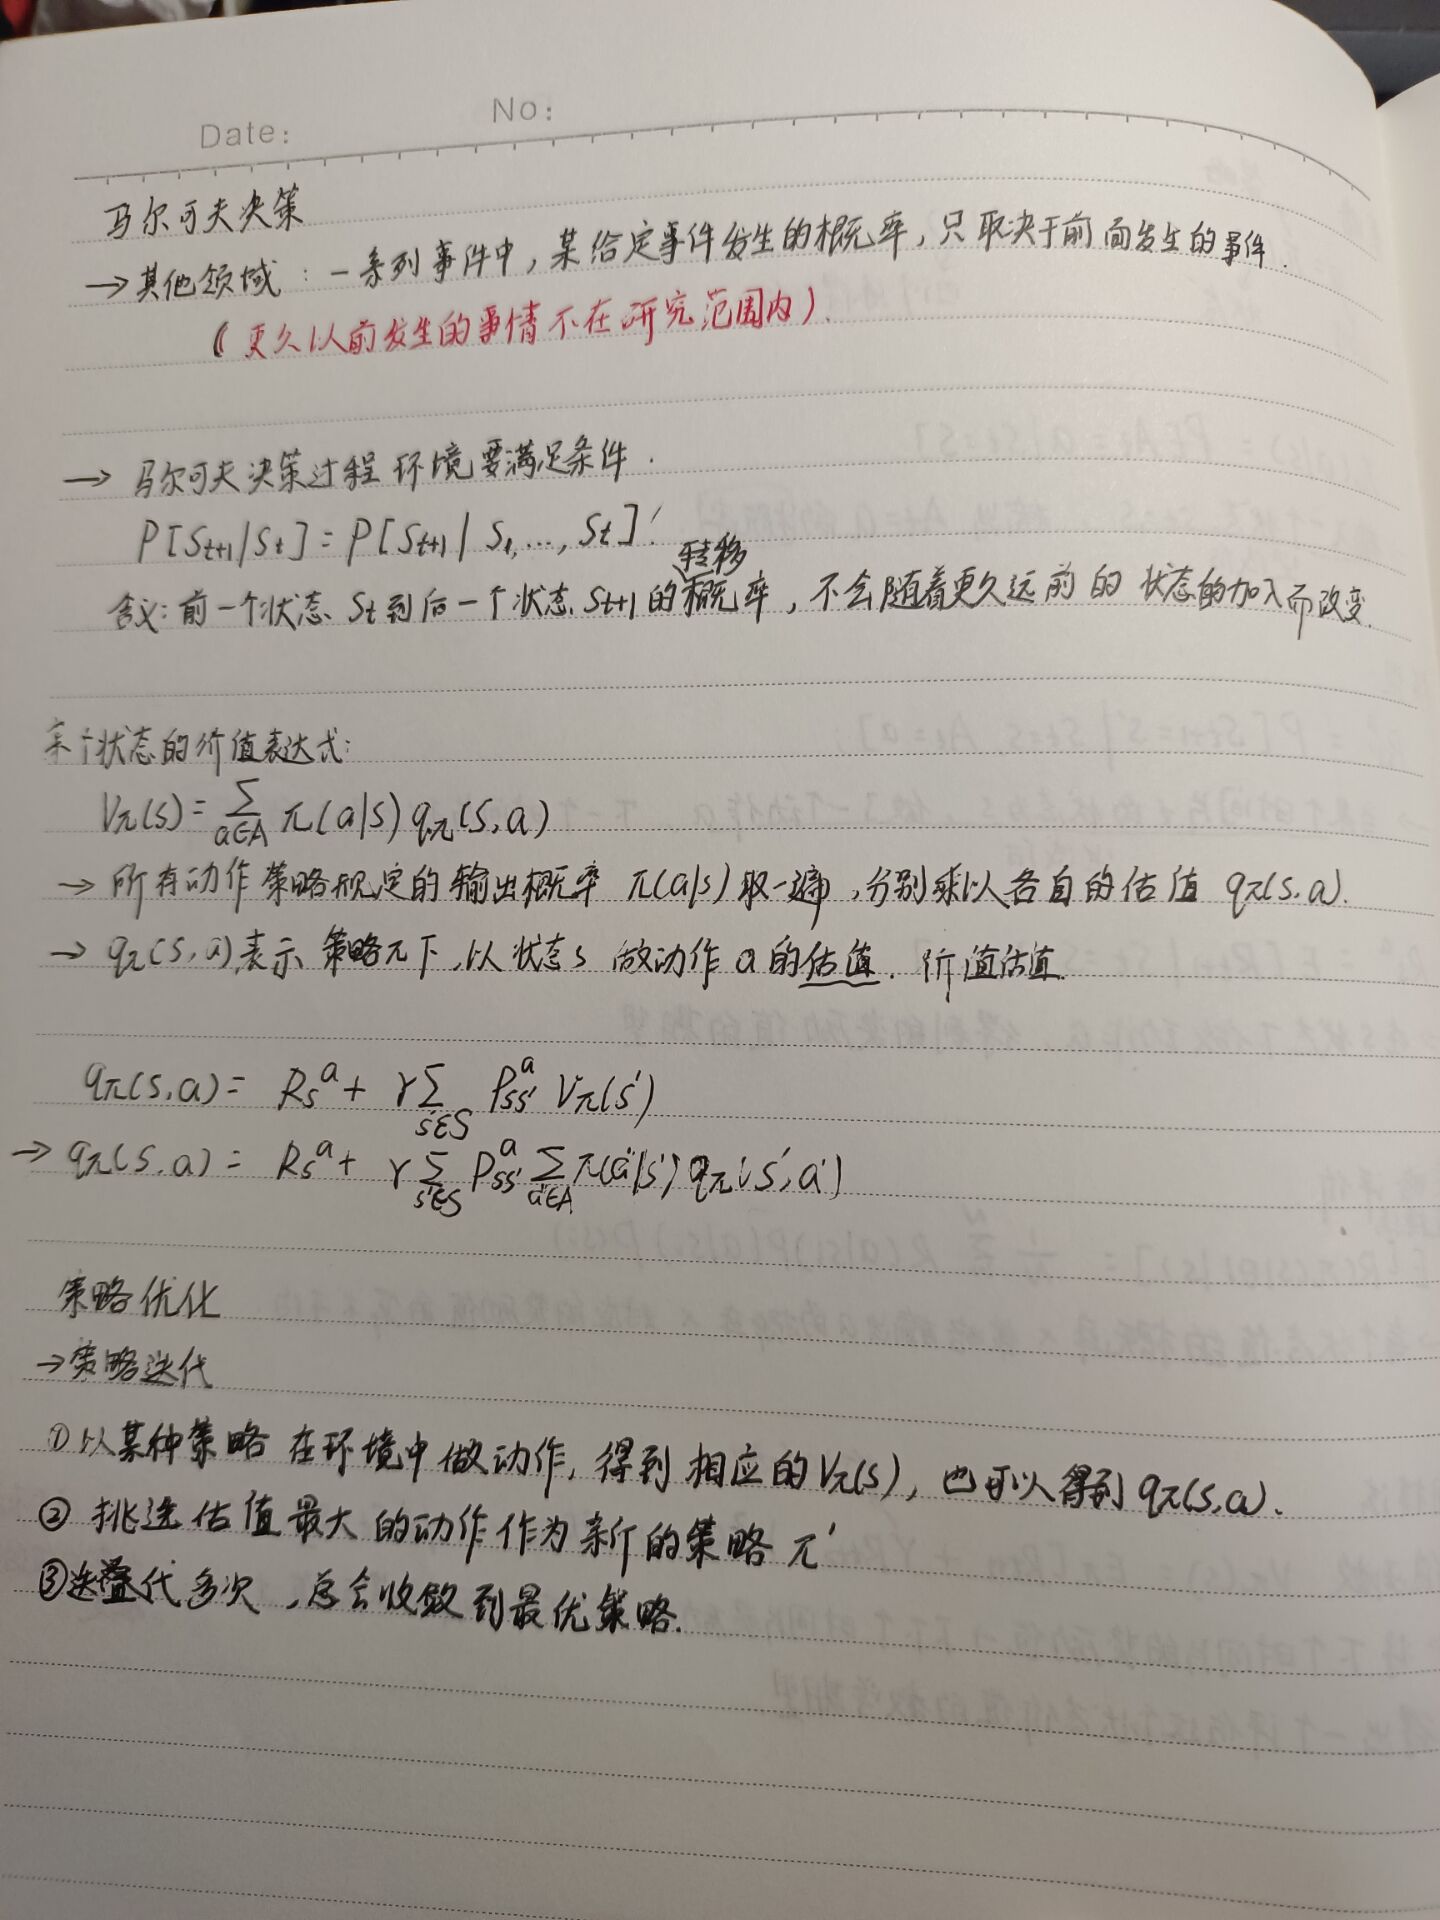 Date: No:
马尔可夫决策
→其他领域:一系列事件中,某给定事件发生的概率,只取决于前面发生的事件.
(更久以前发生的事情不在研究范围内).
→ 马尔可夫决策过程环境要满足条件.
P[St+1|St]=P[St+1|S1,...,St]!
转移
含义:前一个状态St到后一个状态St+1的概率,不会随着更久远前的状态的加入而改变.
某个状态的价值表达式:
Vπ(s)=∑a∈A π(a|s)qπ(s,a)
→ 所有动作策略规定的输出概率π(a|s)取一遍,分别乘以各自的估值qπ(s,a).
→ qπ(s,a)表示策略π下,以状态s做动作a的估值.价值估值
qπ(s,a)= Rs^a+ γ∑s'∈S Pss'^a Vπ(s')
→ qπ(s,a)= Rs^a+ γ∑s'∈S Pss'^a ∑a'∈A π(a'|s')qπ(s',a')
策略优化
→策略迭代
①以某种策略在环境中做动作,得到相应的Vπ(s),也可以得到qπ(s,a).
②挑选估值最大的动作作为新的策略π'
③迭代多次,总会收敛到最优策略.